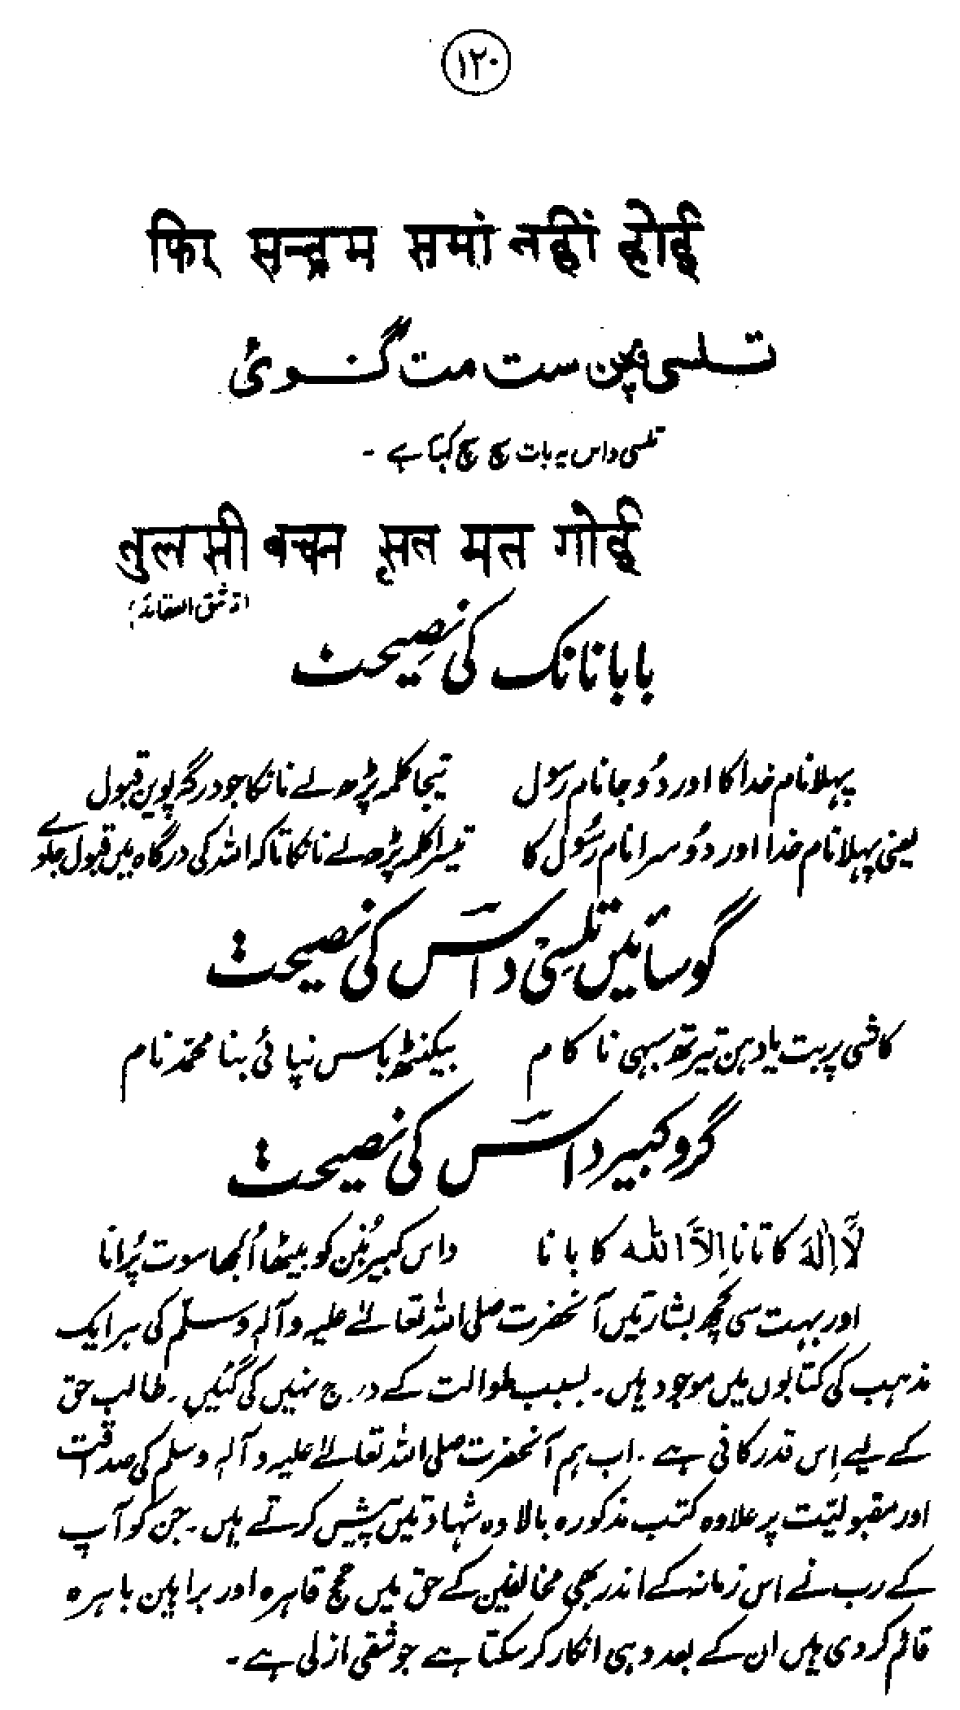 ۱۲۰
फिर सन्द्रम समां नहीं होई
تلسی بچن ست مت گوئی
تلسی داس یہ بات سچ سچ کہتا ہے ۔
तुलसी बचन सत मत गोई
بابا نانک کی نصیحت
پہلا نام خدا کا اور دُوجا نام رسول تیجا کلمہ پڑھ لے نانکا جو درگہ پوین قبول
یعنی پہلا نام خدا اور دُوسرا نام رسُول کا تیسرا کلمہ پڑھ لے نانکا تاکہ اللہ کی درگاہ میں قبول ہو جاوے
گوسائیں تلسی داس کی نصیحت
کاشی پربت یادہن تیرتھ سبھی ناکام بیکنٹھ باس نپائی بنا محمّد نام
گرو کبیر داس کی نصیحت
لَا اِلٰهَ کا تانا اِلَّا اللہ کا بانا داس کبیر بُنن کو بیٹھا اُلجھا سوت پُرانا
اور بہت سی کچھ بشارتیں آنحضرت صلی اللہ تعالےٰ علیہ و آلہ وسلّم کی ہر ایک
مذہب کی کتابوں میں موجود ہیں۔ بسبب طوالت کے درج نہیں کی گئیں۔ طالب حق
کے لیے اِس قدر کافی ہے۔ اب ہم آنحضرت صلی اللہ تعالےٰ علیہ و آلہ وسلم کی صداقت
اور مقبولیّت پر علاوہ کتب مذکورہ بالا وہ شہادتیں پیش کرتے ہیں۔ جن کو آپ
کے رب نے اس زمانہ کے اندر بھی مخالفین کے حق میں حجج قاہرہ اور براہین باہرہ
قائم کر دی ہیں ان کے بعد وہی انکار کر سکتا ہے جو شقی ازلی ہے۔